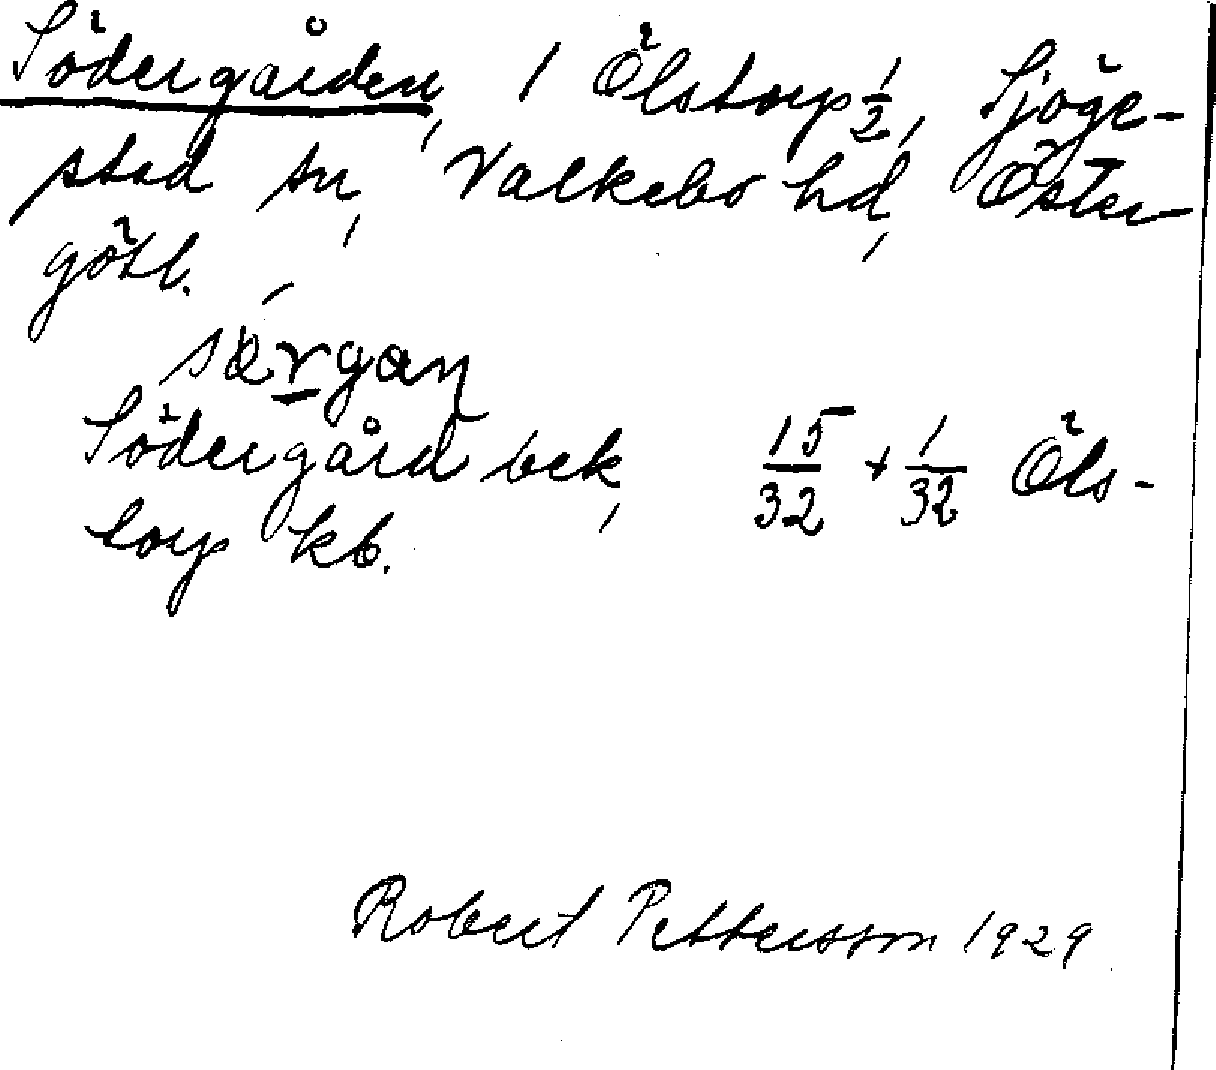 Södergården, 1 Ölstorp 1/2, Sjöge-
stad sn, Valkebo hd, Öster-
götl.
särgan
Södergård bek, 15/32 + 1/32 Öls-
torp kb.
Robert Pettersson 1929